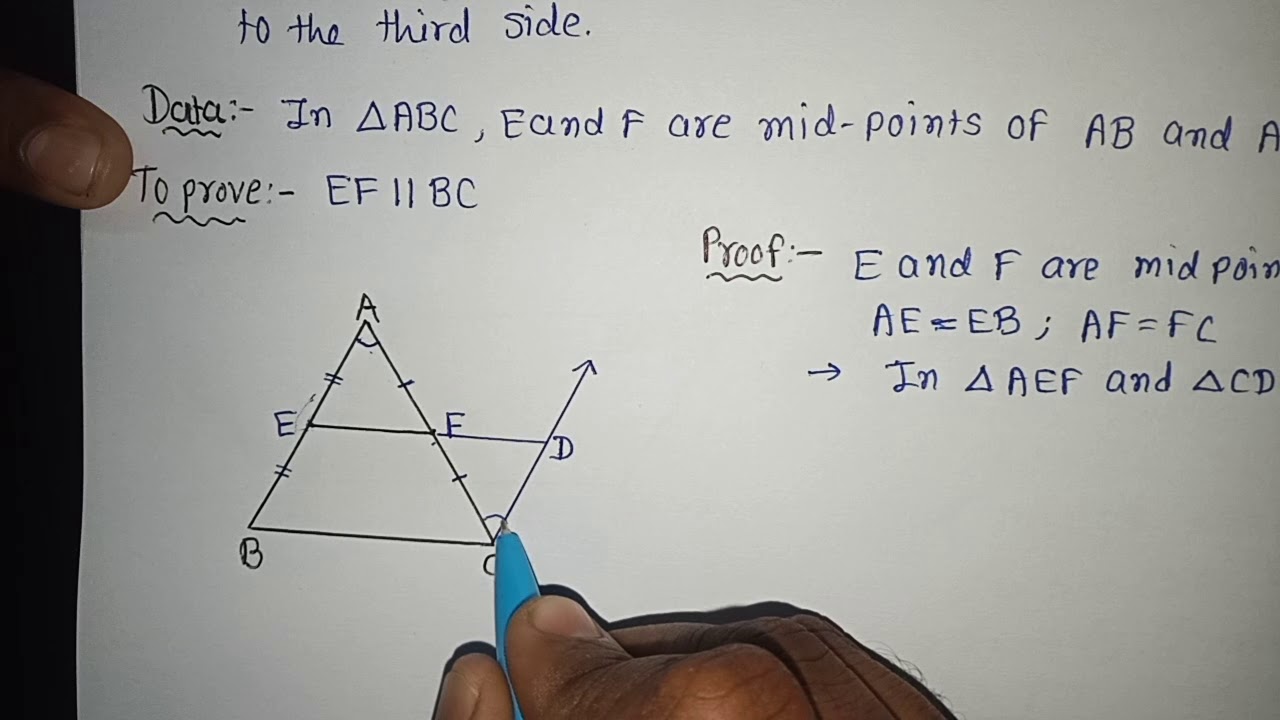 to the third side.
Data:- In △ABC, E and F are mid-points of AB and A
To prove:- EF || BC
Proof:- E and F are mid poin
AE = EB ; AF = FC
→ In △AEF and △CD
A
E
F
D
B
C